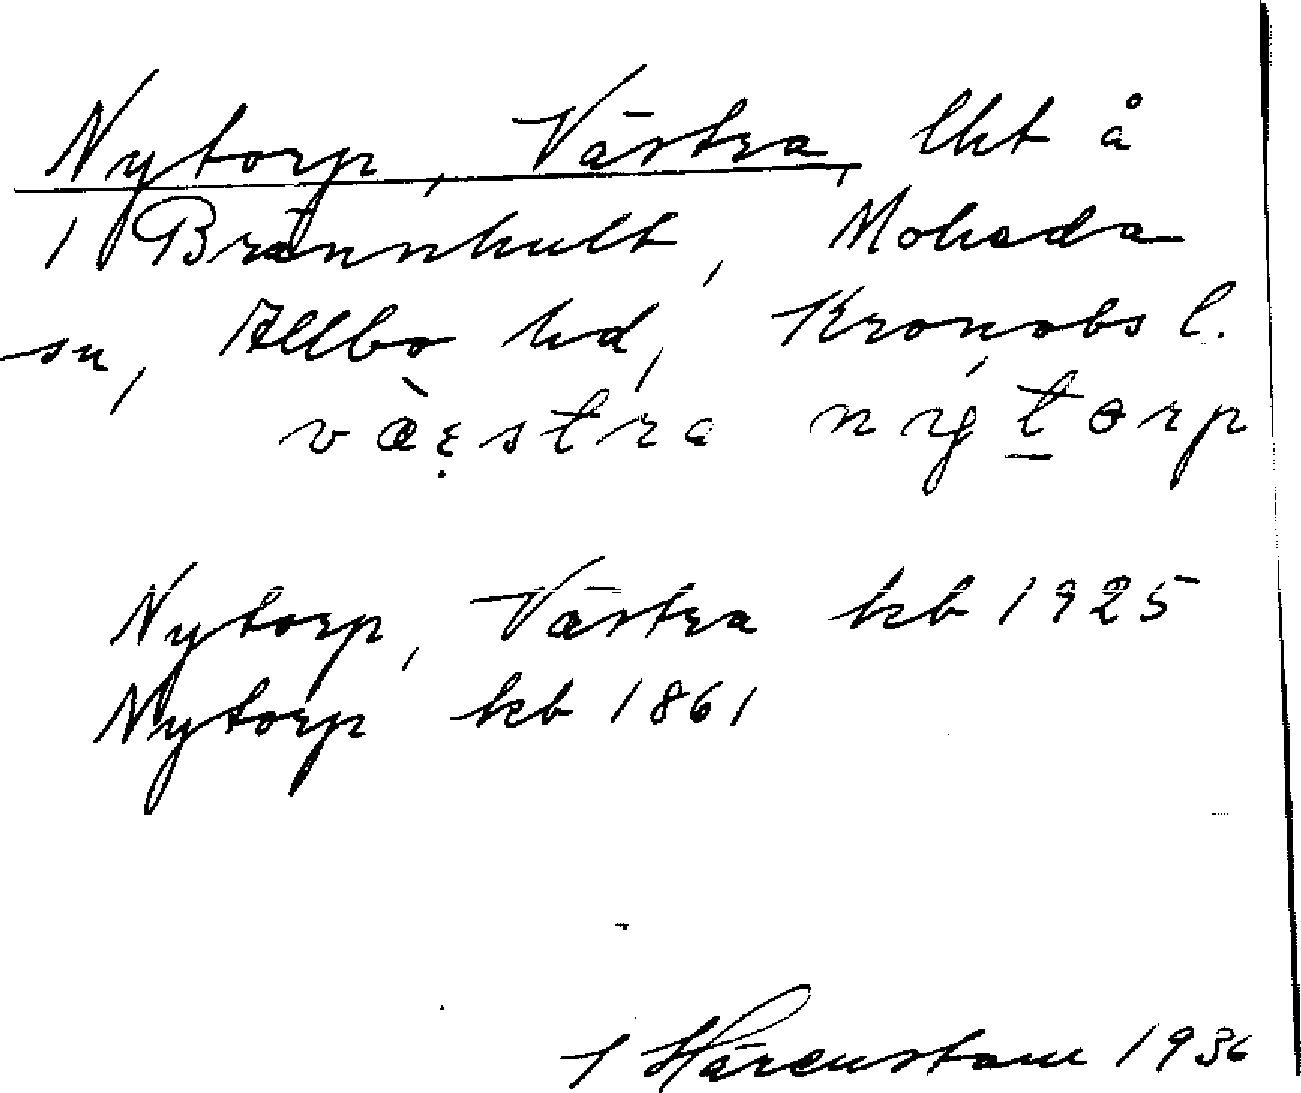 Nytorp, Västra, lht å
1 Brännhult, Moheda
sn, Allbo hd, Kronobs l.
vàɛ̣stra nyt̲orp
Nytorp, Västra kb 1925
Nytorp kb 1861
Härenstam 1936